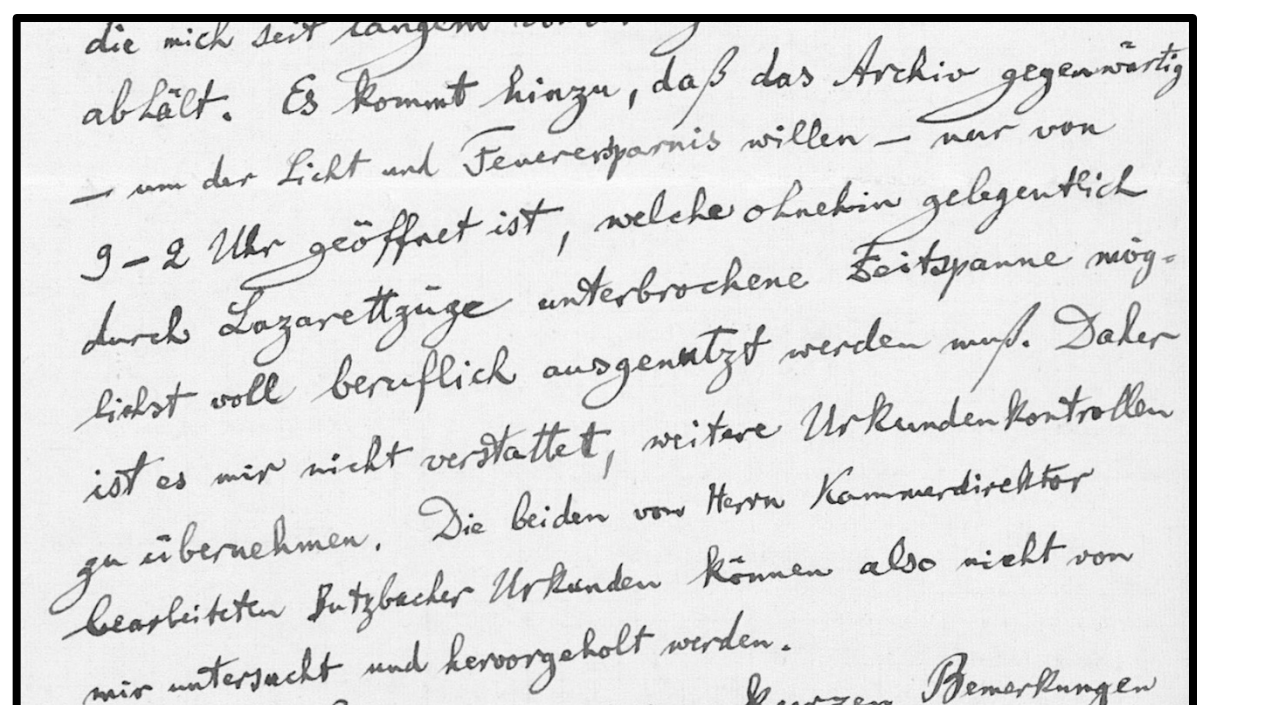 die mich seit langem
abhält. Es kommt hinzu, daß das Archiv gegenwärtig
— um der Licht und Feuerersparnis willen — nur von
9 – 2 Uhr geöffnet ist, welche ohnehin gelegentlich
durch Lazarettzüge unterbrochene Zeitspanne mög=
lichst voll beruflich ausgenutzt werden muß. Daher
ist es mir nicht verstattet, weitere Urkundenkontrollen
zu übernehmen. Die beiden von Herrn Kammerdirektor
bearbeiteten Butzbacher Urkunden können also nicht von
mir untersucht und hervorgeholt werden.
kurzen Bemerkungen